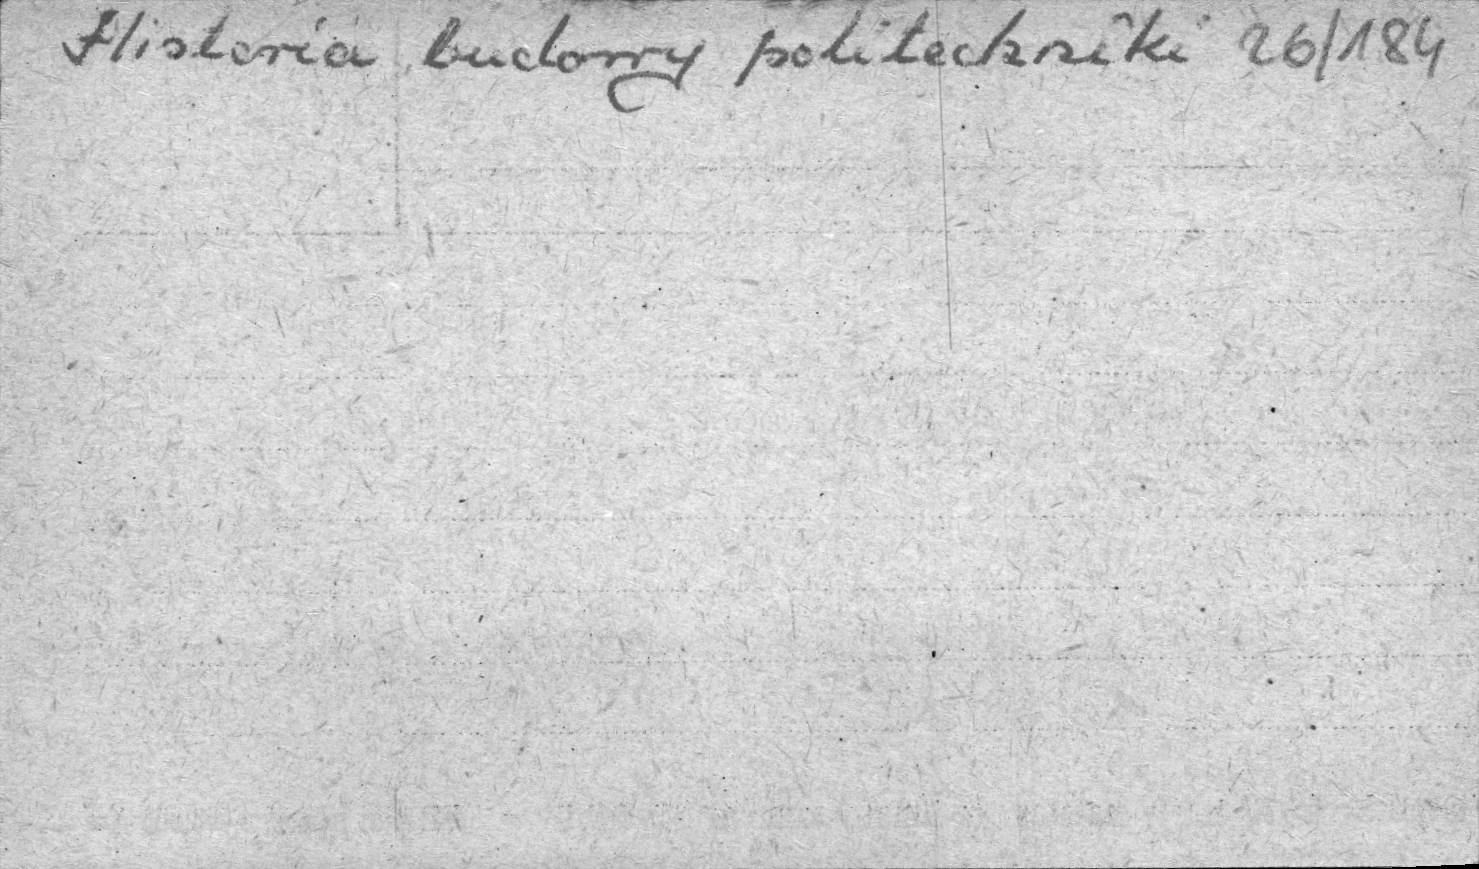 Historia budowy politechniki 26/184